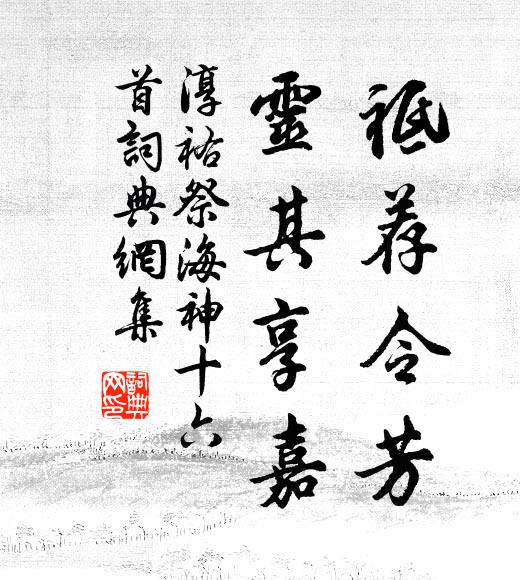 祗荐令芳
靈其享嘉
淳祐祭海神十六
首詞典網集
詞典
网印